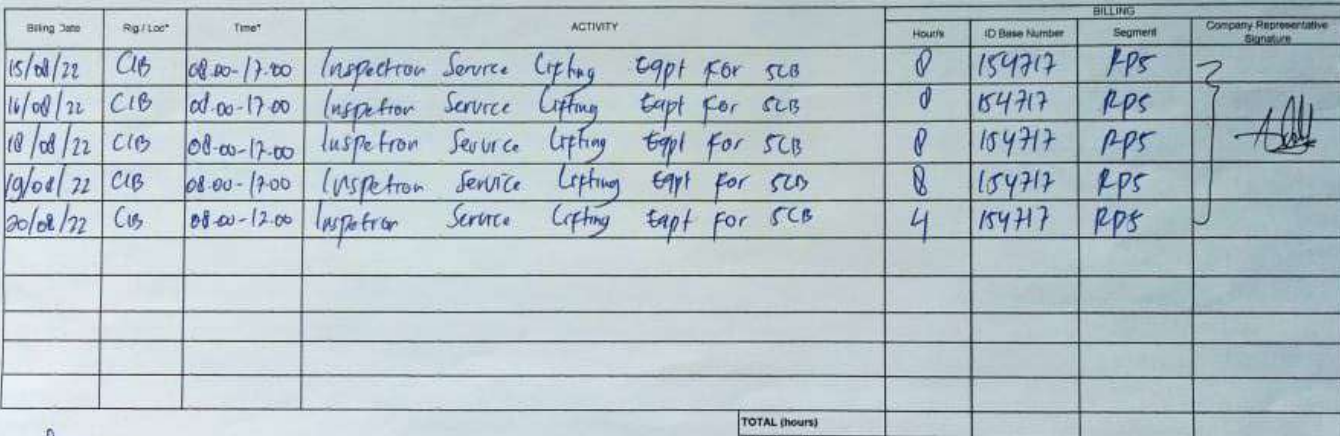 BILLING
Billing Date Rig / Loc* Time* ACTIVITY Hour/s ID Base Number Segment Company Representative Signature
15/08/22 CIB 08.00-17.00 Inspection Service Lifting Eqpt For SCB 8 154717 RPS
16/08/22 CIB 08.00-17.00 Inspetion Service Lifting Eqpt For SCB 8 154717 RPS
18/08/22 CIB 08.00-17.00 Inspetion Service Lifting Eqpt For SCB 8 154717 RPS
19/08/22 CIB 08.00-17.00 Inspetion Service Lifting Eqpt For SCB 8 154717 RPS
20/08/22 CIB 08.00-12.00 Inspetion Service Lifting Eqpt For SCB 4 154717 RPS
TOTAL (hours)